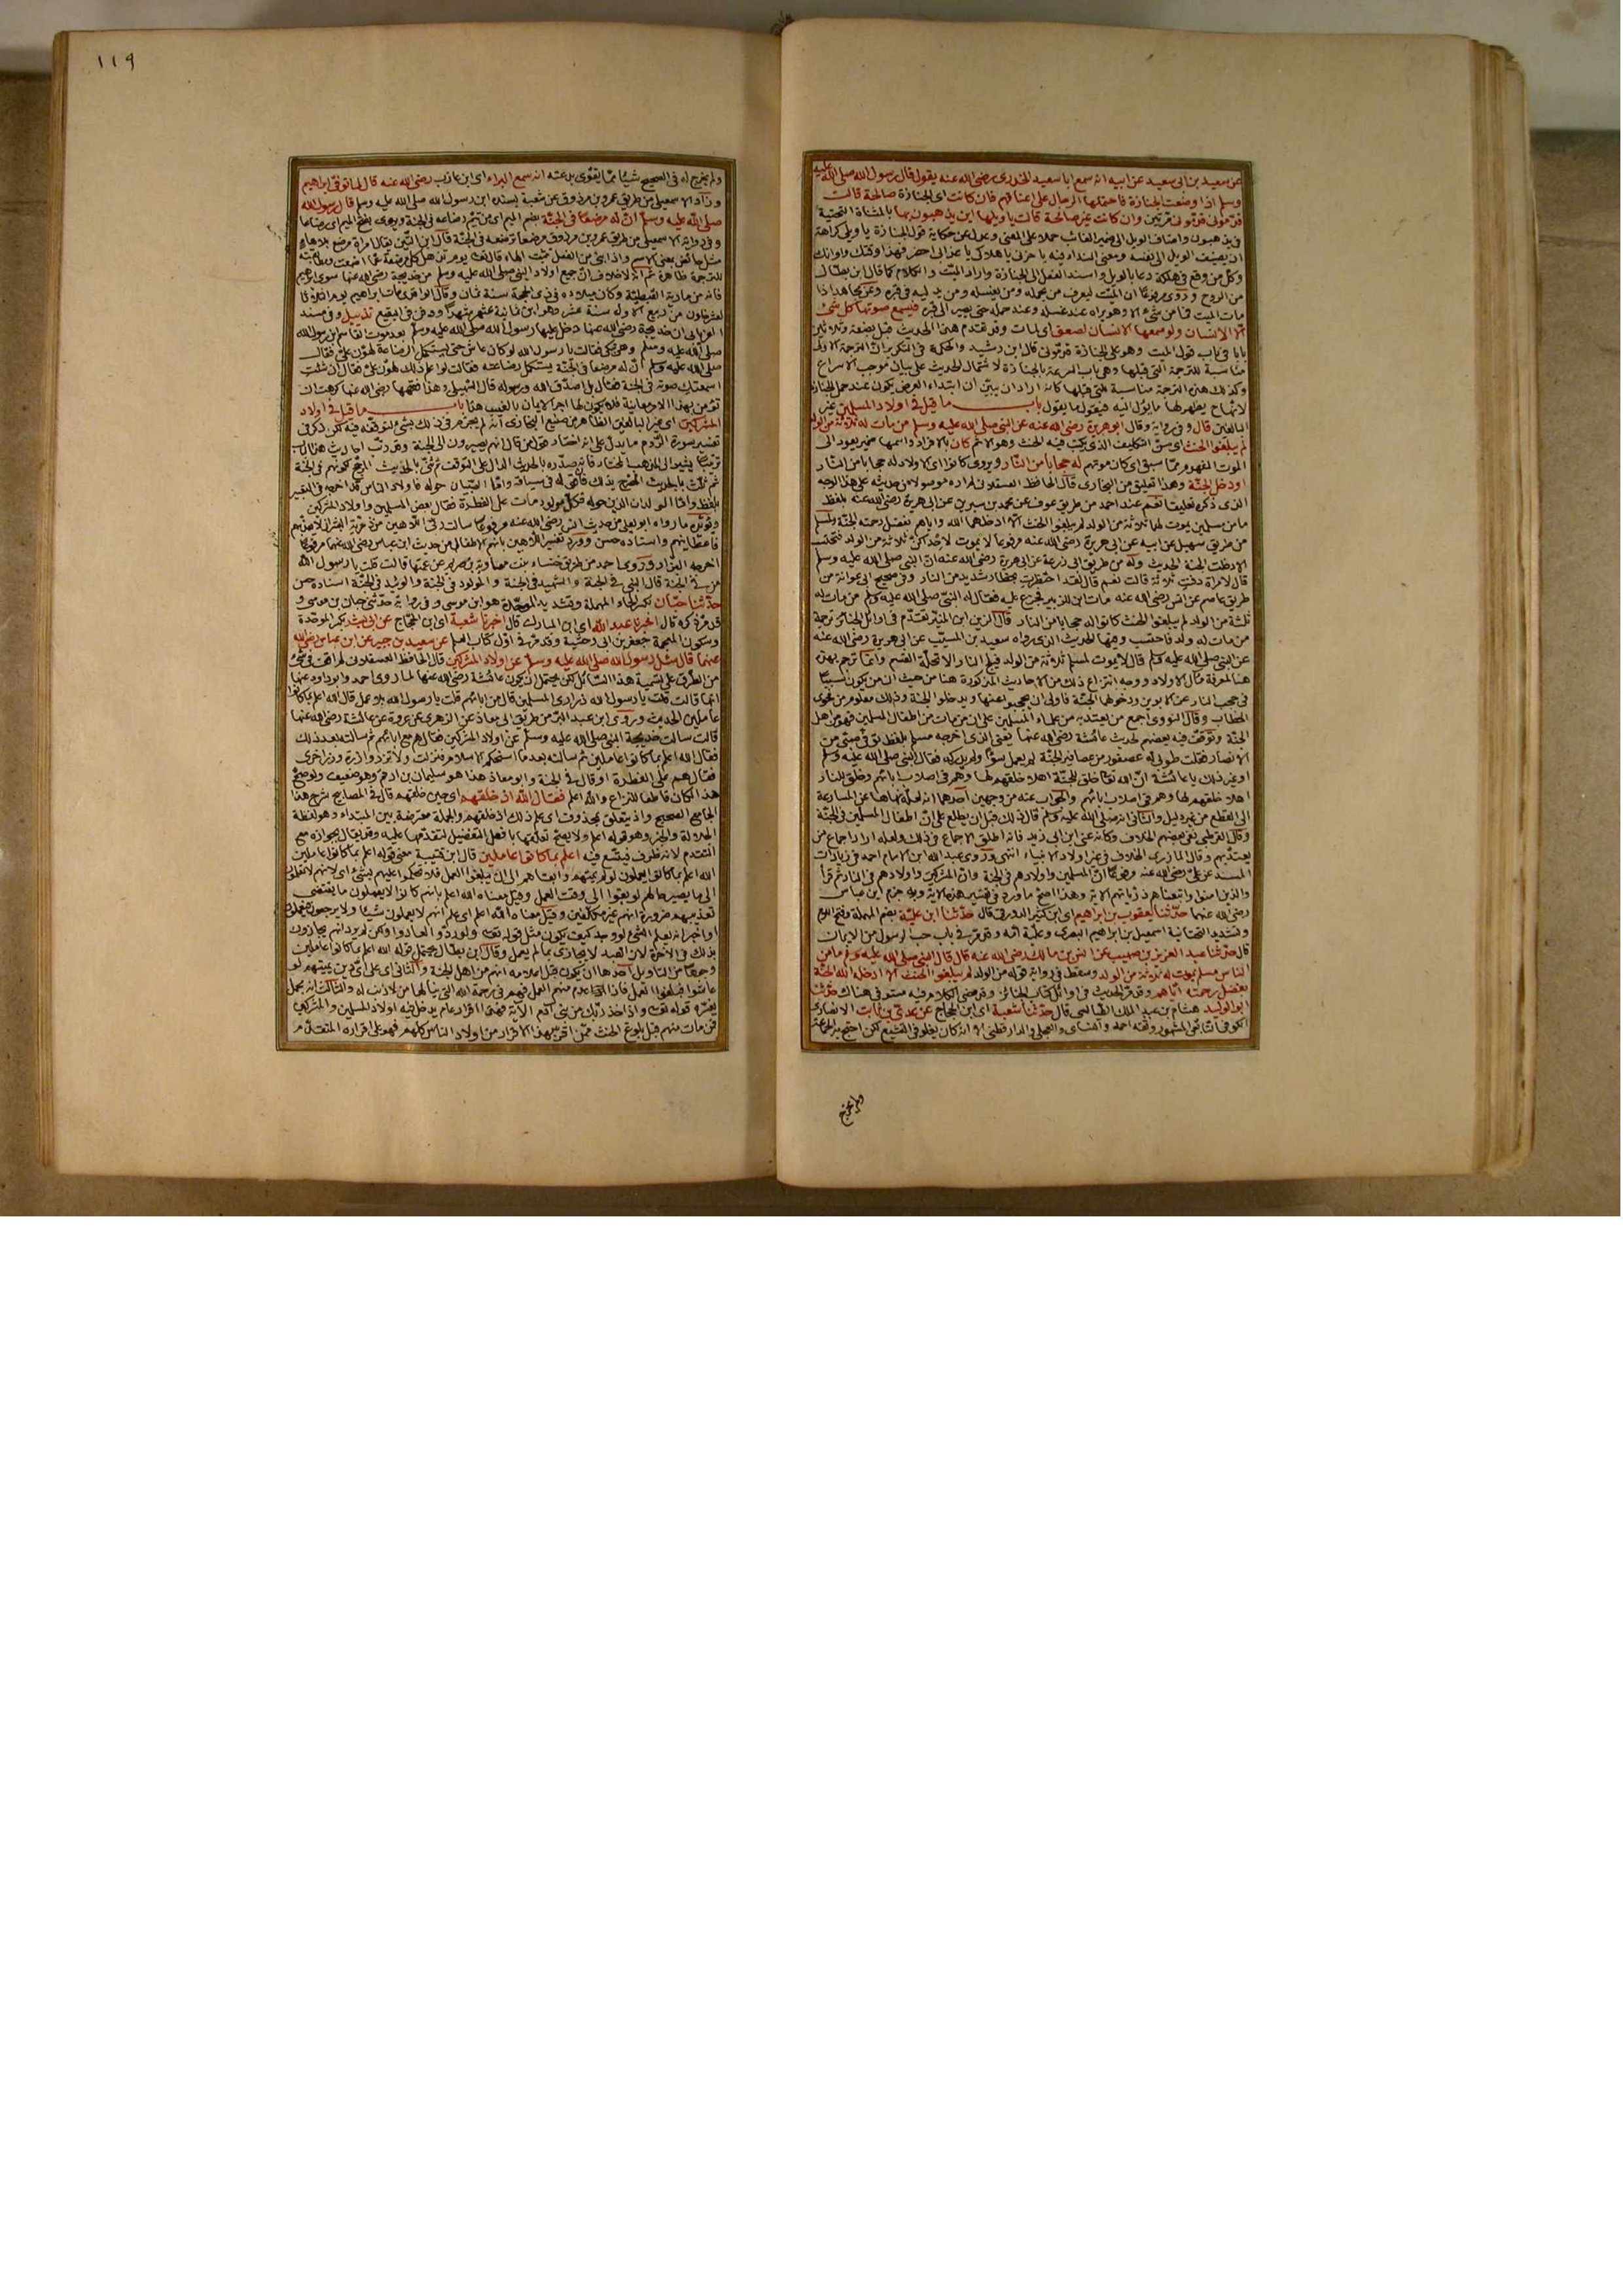 عن سعيد بن ابى سعيد عن ابيه انه سمع ابا سعيد الخدرى رضى الله عنه يقول قال رسول الله صلى الله عليه
وسلم اذا وضعت الجنازة فاحتملها الرجال على اعناقهم فان كانت اى الجنازة صالحة قالت
قدمونى قدمونى قربتين وان كانت غير صالحة قالت يا ويلها اين يذهبون بها بالمثناة التحتية
فى يذهبون واضاف الويل الى ضمير الغائب حملا على المعنى وعدل عن حكاية قول الجنازة يا ويلى كراهة
ان يضيف الويل الى نفسه ومعنى النداء فيه يا حزنى يا هلاكى يا عذابى احضر فهذا وقتك واوانك
وكل من وقع فى هلكة دعا بالويل واسند الفعل الى الجنازة واراد الميت والكلام كما قال ابن بطال
من الروح وروى مرفوعا ان الميت ليعرف من يحمله ومن يغسله ومن يدليه فى قبره وعن مجاهد اذا
مات الميت فما من شىء الا وهو يراه عند غسله وعند حمله حتى يصير الى قبره فيسمع صوتها كل شىء
الا الانسان ولو سمعها الانسان لصعق اى لمات وقد تقدم هذا الحديث قبل بضعة وثلاثين
بابا فى باب قول الميت وهو على الجنازة قدمونى قال ابن رشيد والحكمة فى التكرير ان الترجمة الاولى
مناسبة للترجمة التى قبلها وهى باب السرعة بالجنازة لاشتمال الحديث على بيان موجب الاسراع
وكذلك هذه الترجمة مناسبة للتى قبلها كانه اراد ان يبين ان ابتداء العرض يكون عند حمل الجنازة
لانها ح يظهر لها ما يؤل اليه فيقول ما يقول باب ما قيل فى اولاد المسلمين غير
البالغين قال وفى رواية وقال ابو هريرة رضى الله عنه عن النبى صلى الله عليه وسلم من مات له ثلاثة من الولد
لم يبلغوا الحنث اى سن التكليف الذى يكتب فيه الحنث وهو الاثم كان بالافراد واسمها ضمير يعود الى
الموت المفهوم مما سبق اى كان موتهم له حجابا من النار ويروى كانوا اى الاولاد له حجابا من النار
او دخل الجنة وهذا تعليق من البخارى قال الحافظ العسقلانى لم اره موصولا من حديثه على هذا الوجه
الذى ذكره تعليقا نعم عند احمد من طريق عوف عن محمد بن سيرين عن ابى هريرة رضى الله عنه بلفظ
ما من مسلمين يموت لهما ثلاثة من الولد لم يبلغوا الحنث الا ادخلهما الله واياهم بفضل رحمته الجنة ولمسلم
من طريق سهيل عن ابيه عن ابى هريرة رضى الله عنه مرفوعا لا يموت لاحداكن ثلاثة من الولد فتحتسب
الا دخلت الجنة الحديث وله من طريق ابى زرعة عن ابى هريرة رضى الله عنه ان النبى صلى الله عليه وسلم
قال لامراة دفنت ثلاثة قالت نعم قال لقد احتظرت بحظار شديد من النار وفى صحيح ابى عوانة من
طريق عاصم عن انس رضى الله عنه مات ابن للزبير فجزع عليه فقال له النبى صلى الله عليه وسلم من مات له
ثلثة من الولد لم يبلغوا الحنث كانوا له حجابا من النار قال الزين ابن المنير تقدم فى اوائل الجنائز ترجمة
من مات له ولد فاحتسب وفيها الحديث الذى رواه سعيد بن المسيب عن ابى هريرة رضى الله عنه
عن النبى صلى الله عليه وسلم قال لا يموت لمسلم ثلاثة من الولد فيلج النار الا تحلة القسم وانما ترجم بهذه
هنا لمعرفة مآل الاولاد ووجه انتزاع ذلك من الاحاديث المذكورة هنا من حيث ان من يكون سببا
فى حجب النار عن الابوين ودخولهما الجنة فاولى ان يحجبوا عنها ويدخلوا الجنة وذلك معلوم من فحوى
الخطاب وقال النووى اجمع من يعتد به من علماء المسلمين على ان من مات من اطفال المسلمين فهو من اهل
الجنة وتوقف فيه بعضهم لحديث عائشة رضى الله عنها يعنى الذى اخرجه مسلم بلفظ توفى صبى من
الانصار فقلت طوبى له عصفور من عصافير الجنة لم يعمل سوءا ولم يدركه فقال النبى صلى الله عليه وسلم
او غير ذلك يا عائشة ان الله تعالى خلق للجنة اهلا خلقهم لها وهم فى اصلاب ابائهم وخلق للنار
اهلا خلقهم لها وهم فى اصلاب ابائهم والجواب عنه من وجهين احدهما انه لعله نهاها عن المسارعة
الى القطع من غير دليل والثانى انه صلى الله عليه وسلم قال ذلك قبل ان يطلع على ان اطفال المسلمين فى الجنة
وقال القرطبى نفى بعضهم الخلاف وكانه عنى ابن ابى زيد فانه اطلق الاجماع فى ذلك ولعله اراد اجماع من
يعتد بهم وقال المازرى الخلاف فى غير اولاد الانبياء انتهى وروى عبد الله ابن الامام احمد فى زيادات
المسند عن على رضى الله عنه مرفوعا ان المسلمين واولادهم فى الجنة وان المشركين واولادهم فى النار ثم قرأ
والذين امنوا واتبعناهم ذرياتهم الاية وهذا اصح ما ورد فى تفسير هذه الاية وبه جزم ابن عباس
رضى الله عنهما حدثنا يعقوب بن ابراهيم اى ابن كثير الدورقى قال حدثنا ابن علية بضم المهملة وفتح اللام
وتشديد التحتانية اسمعيل بن ابراهيم البصرى وعلية امه وقد مر فى باب حب الرسول من الايمان
قال حدثنا عبد العزيز بن صهيب عن انس بن مالك رضى الله عنه قال قال النبى صلى الله عليه وسلم ما من
الناس مسلم يموت له ثلاثة من الولد وسقط فى رواية قوله من الولد لم يبلغوا الحنث الا ادخله الله الجنة
بفضل رحمته اياهم وقد مر الحديث فى اوائل كتاب الجنائز وقد مضى الكلام فيه مستوفى هناك حدثنا
ابو الوليد هشام بن عبد الملك الطيالسى قال حدثنا شعبة اى ابن الحجاج عن عدى بن ثابت الانصارى
الكوفى التابعى المشهور وثقه احمد والنساى والعجلى والدارقطنى الا انه كان يغلو فى التشيع لكن احتج به الجماعة
ولم يخرج
١١٩
ولم يخرج له فى الصحيح شيئا مما يقوى بدعته انه سمع البراء اى ابن عازب رضى الله عنه قال لما توفى ابراهيم
وزاد الاسمعيلى من طريق عمرو بن مرزوق عن شعبة بسنده ابن رسول الله صلى الله عليه وسلم قال رسول الله
صلى الله عليه وسلم ان له مرضعا فى الجنة بضم الميم اى من يتم رضاعه فى الجنة ويروى بفتح الميم اى رضاعا
وفى رواية الاسمعيلى من طريق عمرو بن مرزوق مرضعا ترضعه فى الجنة قال ابن التين يقال امراة مرضع بلا هاء
مثل حائض بمعنى الاسم واذا بنى من الفعل تثبت الهاء قال الله يوم تذهل كل مرضعة عما ارضعت ومطابقته
للترجمة ظاهرة ثم انه لا خلاف ان جميع اولاد النبى صلى الله عليه وسلم من خديجة رضى الله عنها سوى ابراهيم
فانه من مارية القبطية وكان ميلاده فى ذى الحجة سنة ثمان وقال الواقدى مات ابراهيم يوم الثلاثا
لعشر خلون من ربيع الاول سنة عشر وهو ابن ثمانية عشر شهرا ودفن فى البقيع تذييل وفى مسند
الفريابى ان خديجة رضى الله عنها دخل عليها رسول الله صلى الله عليه وسلم بعد موت القاسم بن رسول الله
صلى الله عليه وسلم وهى تبكى فقالت يا رسول الله لو كان عاش حتى يستكمل الرضاعة لهون على فقال
صلى الله عليه وسلم ان له مرضعا فى الجنة يستكمل رضاعته فقالت لو اعلم ذلك لهون على فقال ان شئت
اسمعتك صوته فى الجنة فقال بل اصدق الله ورسوله قال السهيلى وهذا من فقهها رضى الله عنها كرهت ان
تؤمن بهذا الامر معاينة فلا يكون لها اجر الايمان بالغيب هذا باب ما قيل فى اولاد
المشركين اى غير البالغين الظاهر من صنيع البخارى انه لم يجزم فى ذلك بشىء لتوقفه فيه لكن ذكر فى
تفسير سورة الروم ما يدل على انه اختار قول من قال انهم يصيرون الى الجنة وقد رتب احاديث هذا الباب
ترتيبا يشير الى المذهب المختار فانه صدره بالحديث الدال على التوقف ثم ثنى بالحديث المرجح كونهم فى الجنة
ثم ثلث بالحديث المصرح بذلك فانه فى سياقه واما الصبيان حوله فاولاد الناس قد اخرجه فى التعبير
بلفظ واما الولدان الذين حوله فكل مولود مات على الفطرة فقال بعض المسلمين واولاد المشركين
ويؤيده ما رواه ابو يعلى من حديث انس رضى الله عنه مرفوعا سالت ربى اللاهين من ذرية البشر ان لا يعذبهم
فاعطانيهم واسناده حسن وورد تفسير اللاهين بانهم الاطفال من حديث ابن عباس رضى الله عنهما مرفوعا
اخرجه البزار وروى احمد من طريق خنساء بنت معاوية بن صريم عن عمتها قالت قلت يا رسول الله
من فى الجنة قال النبى فى الجنة والشهيد فى الجنة والمولود فى الجنة والوئيد فى الجنة اسناده حسن
حدثنا حبان بكسر الحاء المهملة وتشديد الموحدة هو ابن موسى وفى رواية حدثنى حبان بن موسى و
قد مر ذكره قال اخبرنا عبد الله اى ابن المبارك قال اخبرنا شعبة اى ابن الحجاج عن ابى بشر بكسر الموحدة
وسكون المعجمة جعفر بن ابى وحشية وقد مر فى اول كتاب العلم عن سعيد بن جبير عن ابن عباس رضى الله
عنهما قال سئل رسول الله صلى الله عليه وسلم عن اولاد المشركين قال الحافظ العسقلانى لم اقف فى شىء
من الطرق على تسمية هذا السائل لكن يحتمل ان يكون عائشة رضى الله عنها لما روى احمد وابو داود عنها
انها قالت قلت يا رسول الله ذرارى المسلمين قال من ابائهم قلت يا رسول الله بلا عمل قال الله اعلم بما كانوا
عاملين الحديث وروى ابن عبد البر من طريق ابى معاذ عن الزهرى عن عروة عن عائشة رضى الله عنها
قالت سالت خديجة النبى صلى الله عليه وسلم عن اولاد المشركين فقال هم مع ابائهم ثم سالته بعد ذلك
فقال الله اعلم بما كانوا عاملين ثم سالته بعد ما استحكم الاسلام فنزلت ولا تزر وازرة وزر اخرى
فقال هم على الفطرة او قال فى الجنة وابو معاذ هذا هو سليمان بن ارقم وهو ضعيف ولو صح
هذا لكان قاطعا للنزاع والله اعلم فقال الله اذ خلقهم اى حين خلقهم قال فى المصابيح شرح هذا
الجامع الصحيح واذ يتعلق بمحذوف اى علم ذلك اذ خلقهم والجملة معترضة بين المبتداء وهو لفظة
الجلالة والخبر وهو قوله اعلم ولا يصح تعلقها بافعل التفضيل لتقدمها عليه وقد يقال بجوازه مع
التقدم لانه ظرف فيتسع فيه اعلم بما كانوا عاملين قال ابن قتيبة معنى قوله اعلم بما كانوا عاملين
الله اعلم بما كانوا يعملون لو لم يمتهم وابقاهم الى ان يبلغوا العمل فلا تحكموا عليهم بشىء اى لانهم لا تعلق
الى ما يصير حالهم لو بقوا الى وقت العمل وقيل معناه الله اعلم بانهم كانوا لا يعملون ما يقتضى
تعذيبهم ضرورة انهم غير مكلفين وقيل معناه الله اعلم اى علم انهم لا يعملون شيئا ولا يرجعون فيعملون
او اخبر انه يعلم الشىء لو وجد كيف يكون مثل قوله تعالى ولو ردوا لعادوا ولكن لم يرد انهم يجازون
بذلك فى الاخرة لان العبد لا يجازى بما لم يعمل وقال ابن بطال يحتمل قوله الله اعلم بما كانوا عاملين
وجوها من التاويل احدها ان يكون قبل اعلامه انهم من اهل الجنة والثانى اى على اى دين يميتهم لو
عاشوا فبلغوا العمل فاذا عدم منهم العمل فهم فى رحمة الله التى ينالها من لا ذنب له والثالث انه مجمل
يفسره قوله تعالى واذ اخذ ربك من بنى آدم الآية فهذا اقرار عام يدخل فيه اولاد المسلمين والمشركين
فمن مات منهم قبل بلوغ الحنث ممن اقر بهذا الاقرار من اولاد الناس كلهم فهو على اقراره المتقدم